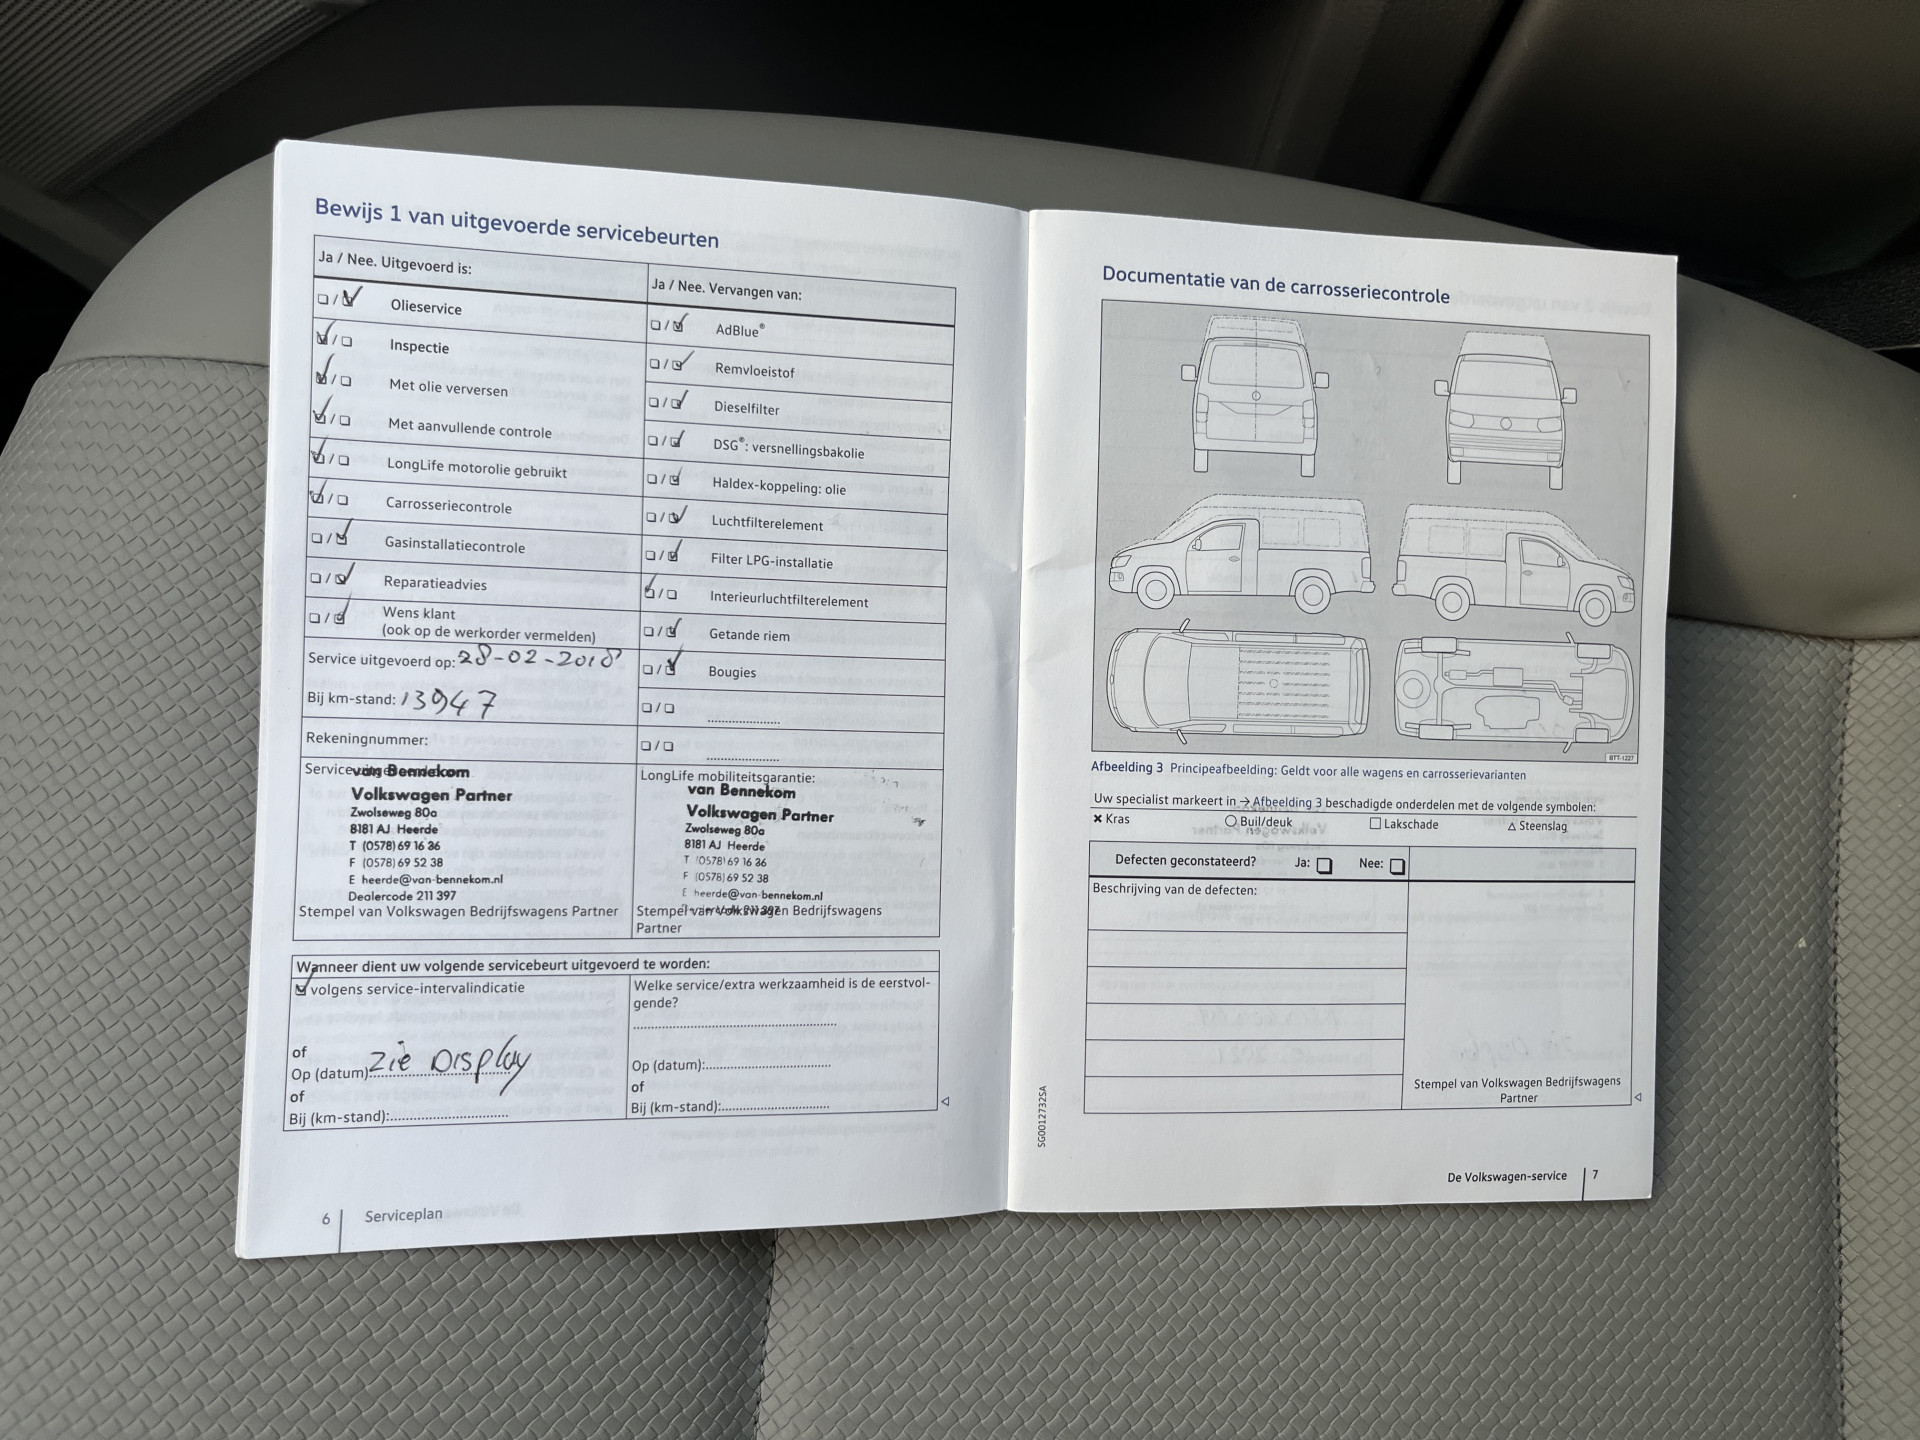 Bewijs 1 van uitgevoerde servicebeurten
Ja / Nee. Uitgevoerd is:
Olieservice
Inspectie
Met olie verversen
Met aanvullende controle
LongLife motorolie gebruikt
Carrosseriecontrole
Gasinstallatiecontrole
Reparatieadvies
Wens klant
(ook op de werkorder vermelden)
Service uitgevoerd op: 28-02-2018
Bij km-stand: 13947
Rekeningnummer:
Ja / Nee. Vervangen van:
AdBlue®
Remvloeistof
Dieselfilter
DSG®: versnellingsbakolie
Haldex-koppeling: olie
Luchtfilterelement
Filter LPG-installatie
Interieurluchtfilterelement
Getande riem
Bougies
Service
van Bennekom
Volkswagen Partner
Zwolseweg 80a
8181 AJ Heerde
T (0578) 69 16 36
F (0578) 69 52 38
E heerde@van-bennekom.nl
Dealercode 211 397
Stempel van Volkswagen Bedrijfswagens Partner
LongLife mobiliteitsgarantie:
van Bennekom
Volkswagen Partner
Zwolseweg 80a
8181 AJ Heerde
T (0578) 69 16 36
F (0578) 69 52 38
E heerde@van-bennekom.nl
Stempel van Volkswagen Bedrijfswagens
Partner
Wanneer dient uw volgende servicebeurt uitgevoerd te worden:
volgens service-intervalindicatie
of
Op (datum) Zie Display
of
Bij (km-stand):
Welke service/extra werkzaamheid is de eerstvol-
gende?
Op (datum):
of
Bij (km-stand):
6 Serviceplan
Documentatie van de carrosseriecontrole
BTT-1227
Afbeelding 3 Principeafbeelding: Geldt voor alle wagens en carrosserievarianten
Uw specialist markeert in → Afbeelding 3 beschadigde onderdelen met de volgende symbolen:
× Kras ○ Buil/deuk □ Lakschade △ Steenslag
Defecten geconstateerd? Ja: Nee:
Beschrijving van de defecten:
Stempel van Volkswagen Bedrijfswagens
Partner
SG0012732SA
De Volkswagen-service 7